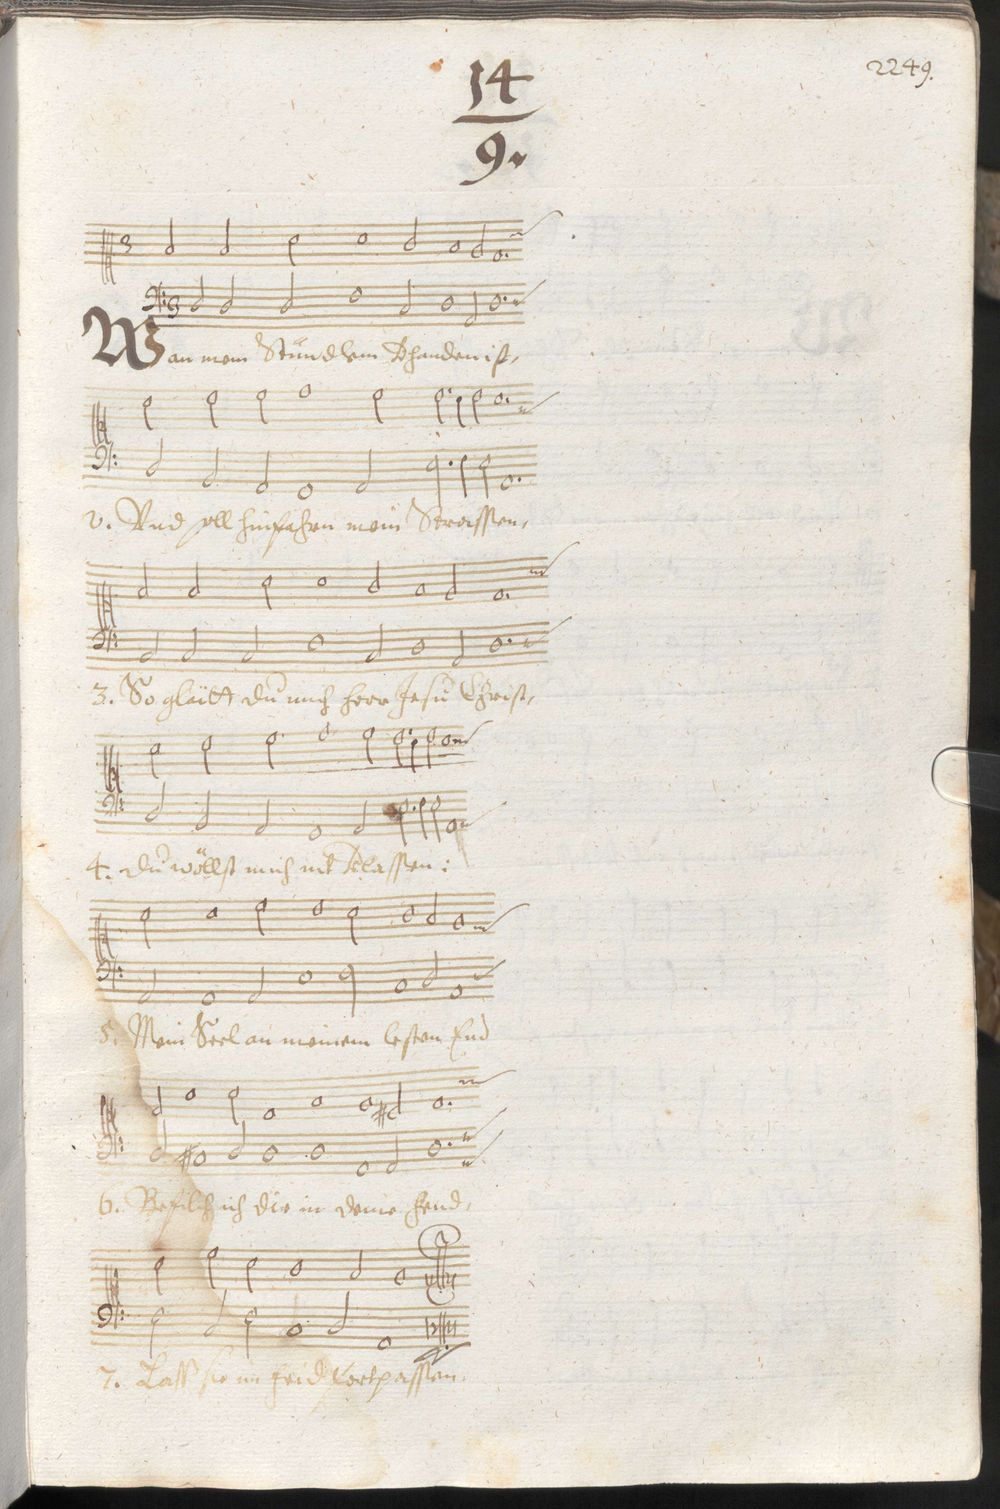 2249.
14
9.
Wan mein Stündlein Vhanden ist,
2. Und soll hinfahrn mein Strassen,
3. So glaitt du mich Herr Jesu Christ,
4. du wöllst mich nit Vlassen:
5. Mein Seel an meinem lesten End
6. Befilch ich dir in deine Hend,
7. Lass sie im frid